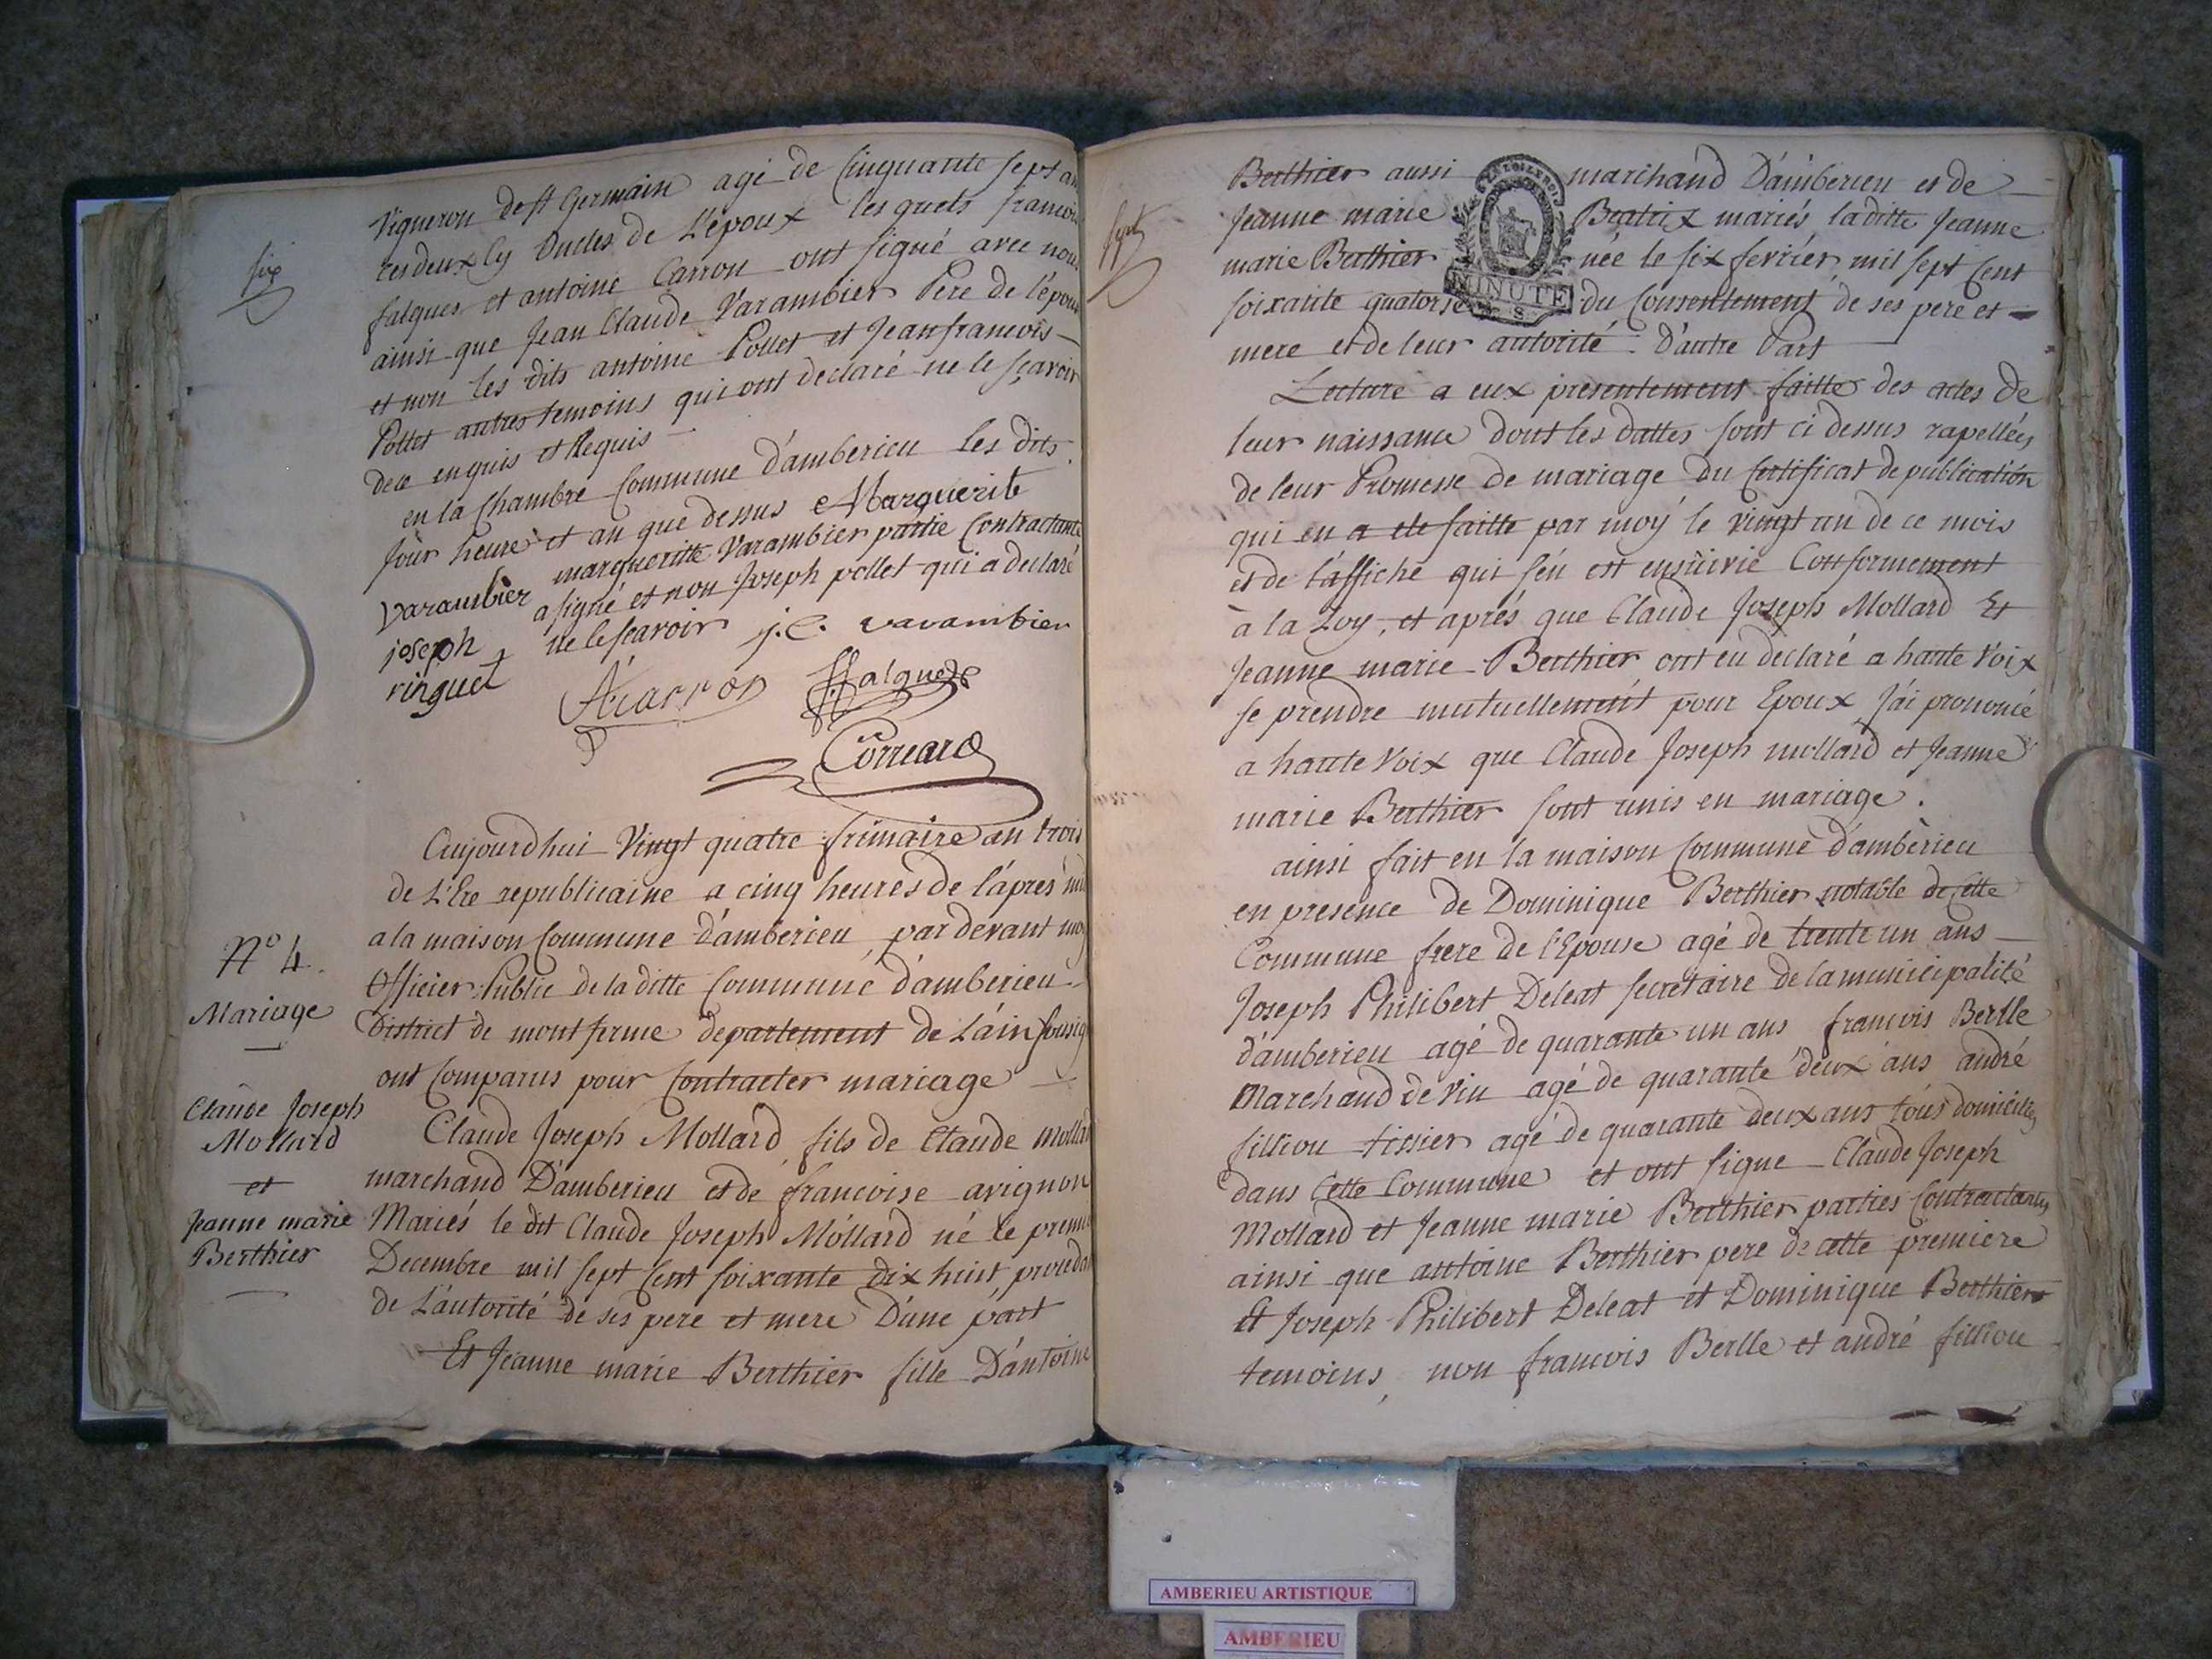 six
Vigneron de st Germain agé de Cinquante sept an
ces deux cy oncles de L'époux les quels francois
falques et antoine Carron ont signé avec nous
ainsi que Jean Claude Varambier Pere de l'épouse
et non les dits antoine Pollet et Jean francois
Pollet autres temoins qui ont declaré ne le sçavoir
de ce enquis et Requis
en la Chambre Commune d'amberieu les dits
Jour heure et an que dessus Marguerite
Varambier margueritte Varambier partie Contractante
a signé et non Joseph pollet qui a declaré
ne le scavoir j. C. varambier
joseph
ringuet
A. carron
falques
Correard
N° 4.
Mariage
Claude Joseph
Mollard
et
Jeanne marie
Berthier
Aujourdhui Vingt quatre frimaire an trois
de L'Ere republicaine a cinq heures de l'apres mid
a la maison Commune d'amberieu par devant moy
Officier Public de la ditte Commune d'amberieu
District de mont ferme departement de L'ain sousig
ont Comparus pour Contracter mariage
Claude Joseph Mollard fils de Claude Mollar
marchand D'amberieu et de francoise avignon
Mariés le dit Claude Joseph Mollard né le premie
Decembre mil sept Cent soixante dix huit procedan
de L'autorité de ses pere et mere D'une part
Et Jeanne marie Berthier fille D'antoine
sept
Berthier aussi marchand D'amberieu et de
Jeanne marie Beatrix mariés la ditte Jeanne
marie Berthier née le six fevrièr mil sept Cent
MINUTE
S
soixante quatorse du Consentement de ses pere et
mere et de leur autorité D'autre Part
Lecture a eux presentement faitte des actes de
leur naissance dont les dattes sont ci dessus rapellées
de leur Promesse de mariage du Certificat de publication
qui en a eté faitte par moy le vingt un de ce mois
et de l'affiche qui s'en est ensuivie Conformement
à la Loy, et aprés que Claude Joseph Mollard Et
Jeanne marie Berthier ont eu declaré a haute Voix
se prendre mutuellement pour Epoux j'ai prononcé
a haute Voix que Claude Joseph mollard et Jeanne
marie Berthier sont unis en mariage.
ainsi fait en la maison Commune d'ambèrieu
en presence de Dominique Berthier notable de Cette
Commune frere de l'Epouse agé de trente un ans
Joseph Philibert Deleat secretaire de la municipalité
d'amberieu agé de quarante un ans francois Berlle
Marchand de Vin agé de quarante deux ans andré
filliou tissier agé de quarante deux ans tous domiciliés
dans Cette Commune et ont signe Claude Joseph
Mollard et Jeanne marie Berthier parties Contractantes
ainsi que antoine Berthier pere de cette premiere
Et Joseph Philibert Deleat et Dominique Berthier
temoins, non francois Berlle et andré filliou
AMBERIEU ARTISTIQUE
AMBERIEU